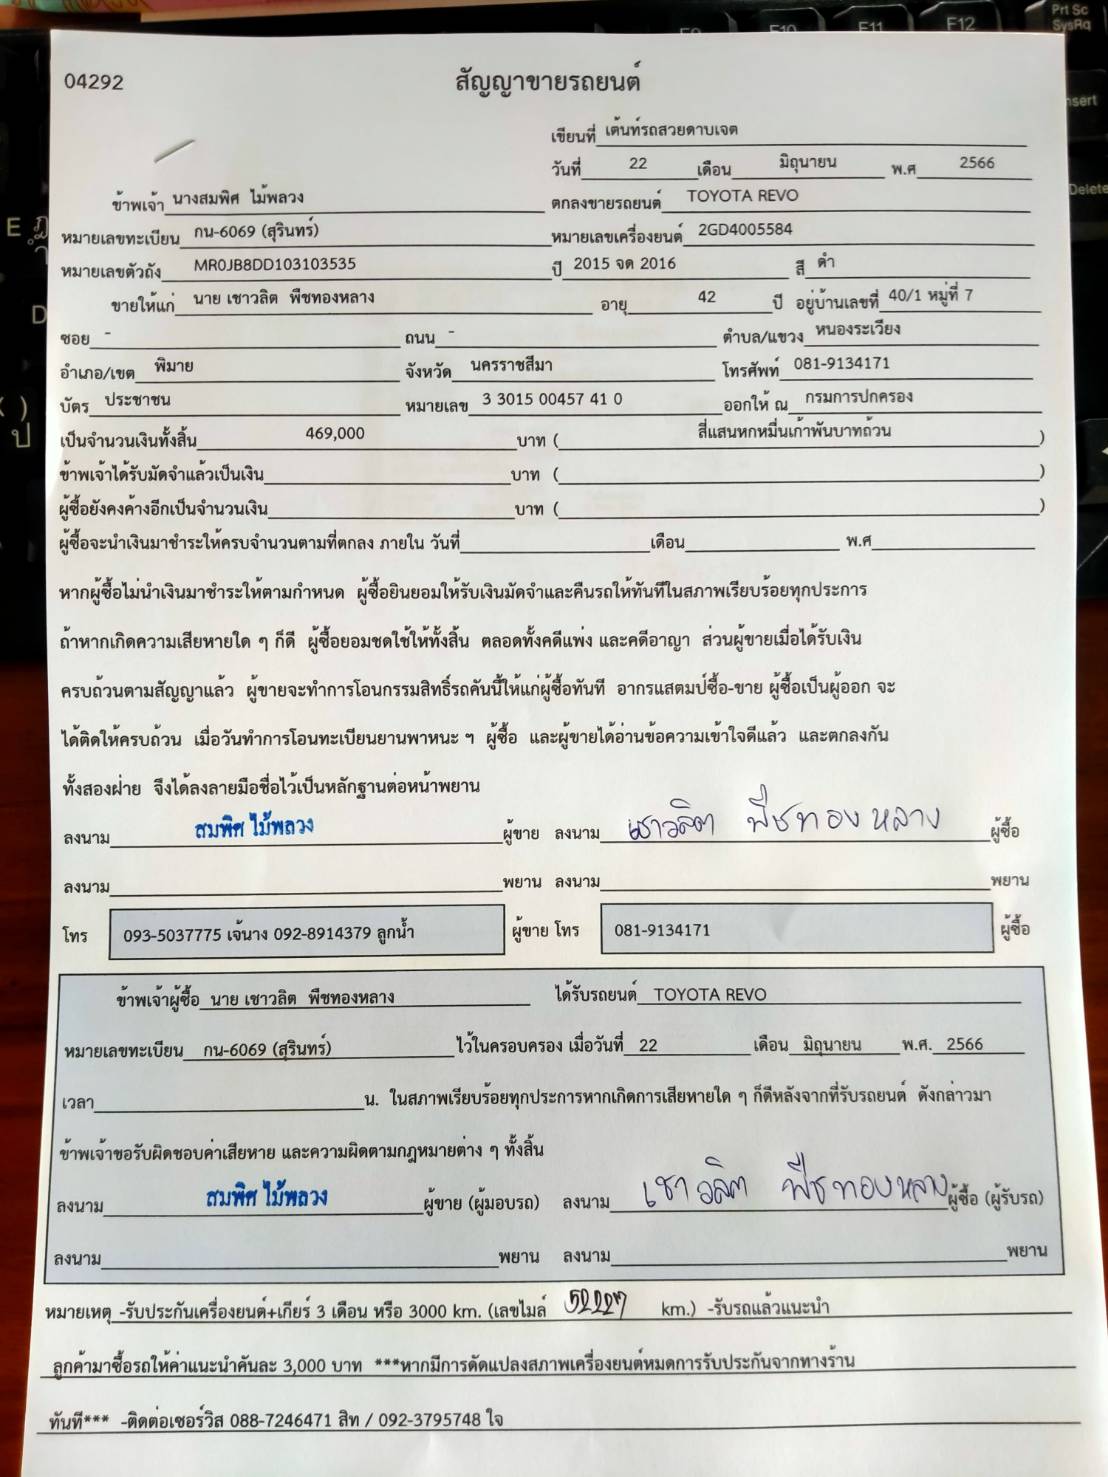 04292
สัญญาขายรถยนต์
เขียนที่ เต้นท์รถสวยดาบเจต
วันที่ 22 เดือน มิถุนายน พ.ศ 2566
ข้าพเจ้า นางสมพิศ ไม้พลวง ตกลงขายรถยนต์ TOYOTA REVO
หมายเลขทะเบียน กน-6069 (สุรินทร์) หมายเลขเครื่องยนต์ 2GD4005584
หมายเลขตัวถัง MR0JB8DD103103535 ปี 2015 จด 2016 สี ดำ
ขายให้แก่ นาย เชาวลิต พืชทองหลาง อายุ 42 ปี อยู่บ้านเลขที่ 40/1 หมู่ที่ 7
ซอย - ถนน - ตำบล/แขวง หนองระเวียง
อำเภอ/เขต พิมาย จังหวัด นครราชสีมา โทรศัพท์ 081-9134171
บัตร ประชาชน หมายเลข 3 3015 00457 41 0 ออกให้ ณ กรมการปกครอง
เป็นจำนวนเงินทั้งสิ้น 469,000 บาท ( สี่แสนหกหมื่นเก้าพันบาทถ้วน )
ข้าพเจ้าได้รับมัดจำแล้วเป็นเงิน บาท ( )
ผู้ซื้อยังคงค้างอีกเป็นจำนวนเงิน บาท ( )
ผู้ซื้อจะนำเงินมาชำระให้ครบจำนวนตามที่ตกลง ภายใน วันที่ เดือน พ.ศ
หากผู้ซื้อไม่นำเงินมาชำระให้ตามกำหนด ผู้ซื้อยินยอมให้รับเงินมัดจำและคืนรถให้ทันทีในสภาพเรียบร้อยทุกประการ
ถ้าหากเกิดความเสียหายใด ๆ ก็ดี ผู้ซื้อยอมชดใช้ให้ทั้งสิ้น ตลอดทั้งคดีแพ่ง และคดีอาญา ส่วนผู้ขายเมื่อได้รับเงิน
ครบถ้วนตามสัญญาแล้ว ผู้ขายจะทำการโอนกรรมสิทธิ์รถคันนี้ให้แก่ผู้ซื้อทันที อากรแสตมป์ซื้อ-ขาย ผู้ซื้อเป็นผู้ออก จะ
ได้ติดให้ครบถ้วน เมื่อวันทำการโอนทะเบียนยานพาหนะ ฯ ผู้ซื้อ และผู้ขายได้อ่านข้อความเข้าใจดีแล้ว และตกลงกัน
ทั้งสองฝ่าย จึงได้ลงลายมือชื่อไว้เป็นหลักฐานต่อหน้าพยาน
ลงนาม สมพิศ ไม้พลวง ผู้ขาย ลงนาม เชาวลิต พืชทองหลาง ผู้ซื้อ
ลงนาม พยาน ลงนาม พยาน
โทร 093-5037775 เจ้นาง 092-8914379 ลูกน้ำ ผู้ขาย โทร 081-9134171 ผู้ซื้อ
ข้าพเจ้าผู้ซื้อ นาย เชาวลิต พืชทองหลาง ได้รับรถยนต์ TOYOTA REVO
หมายเลขทะเบียน กน-6069 (สุรินทร์) ไว้ในครอบครอง เมื่อวันที่ 22 เดือน มิถุนายน พ.ศ. 2566
เวลา น. ในสภาพเรียบร้อยทุกประการหากเกิดการเสียหายใด ๆ ก็ดีหลังจากที่รับรถยนต์ ดังกล่าวมา
ข้าพเจ้าขอรับผิดชอบค่าเสียหาย และความผิดตามกฎหมายต่าง ๆ ทั้งสิ้น
ลงนาม สมพิศ ไม้พลวง ผู้ขาย (ผู้มอบรถ) ลงนาม เชาวลิต พืชทองหลาง ผู้ซื้อ (ผู้รับรถ)
ลงนาม พยาน ลงนาม พยาน
หมายเหตุ -รับประกันเครื่องยนต์+เกียร์ 3 เดือน หรือ 3000 km. (เลขไมล์ 52227 km.) -รับรถแล้วแนะนำ
ลูกค้ามาซื้อรถให้ค่าแนะนำคันละ 3,000 บาท ***หากมีการดัดแปลงสภาพเครื่องยนต์หมดการรับประกันจากทางร้าน
ทันที*** -ติดต่อเซอร์วิส 088-7246471 สิท / 092-3795748 ใจ
F10
F11
F12
Prt Sc
SysRq
Insert
Delete
E
D